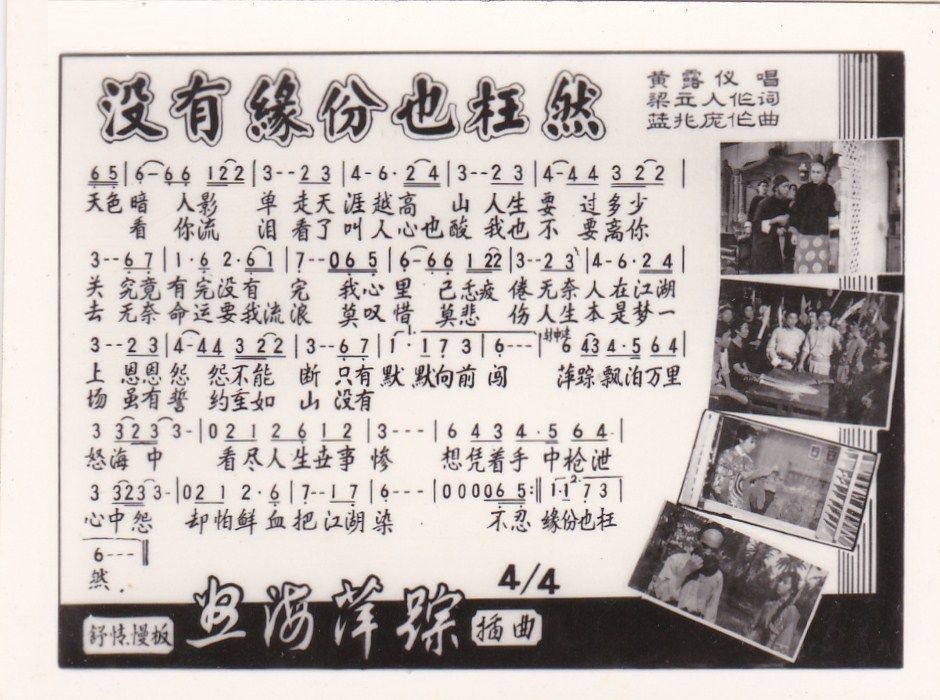 没有緣份也枉然
黄露仪 唱
梁立人作词
蓝兆庞作曲
6 5 | 6-6 6 1 2 2 | 3--2 3 | 4-6·2 4 | 3--2 3 | 4-4 4 3 2 2 |
天色暗 人影 单 走天涯越高 山 人生要 过多少
看 你流 泪 看了叫人心也酸 我也不 要离你
3--6 7 | 1·6 2·6 1 | 7--0 6 5 | 6-6 6 1 2 2 | 3--2 3 | 4-6·2 4 |
关 究竟有完没有 完 我心里 已忘疲 倦无奈人在江湖
去 无奈命运要我流浪 莫叹惜 莫悲 伤人生本是梦一
3--2 3 | 4-4 4 3 2 2 | 3--6 7 | 1·1 7 3 | 6--- | 6 4 3 4·5 6 4 |
上 恩恩怨 怨不能 断 只有默 默向前闯 萍踪飘泊万里
场 虽有誓 约重如 山 没有
3 3 2 3 3- | 0 2 1 2 6 1 2 | 3--- | 6 4 3 4·5 6 4 |
怒海中 看尽人生世事惨 想凭着手中枪泄
3 3 2 3 3- | 0 2 1 2·6 | 7--1 7 | 6--- | 0 0 0 0 6 5 :‖ 1·1 7 3 |
心中怨 却怕鲜血把江湖染 不忍缘份也枉
6--- ‖
然.
4/4
怒海萍踪 插曲
舒情.慢板